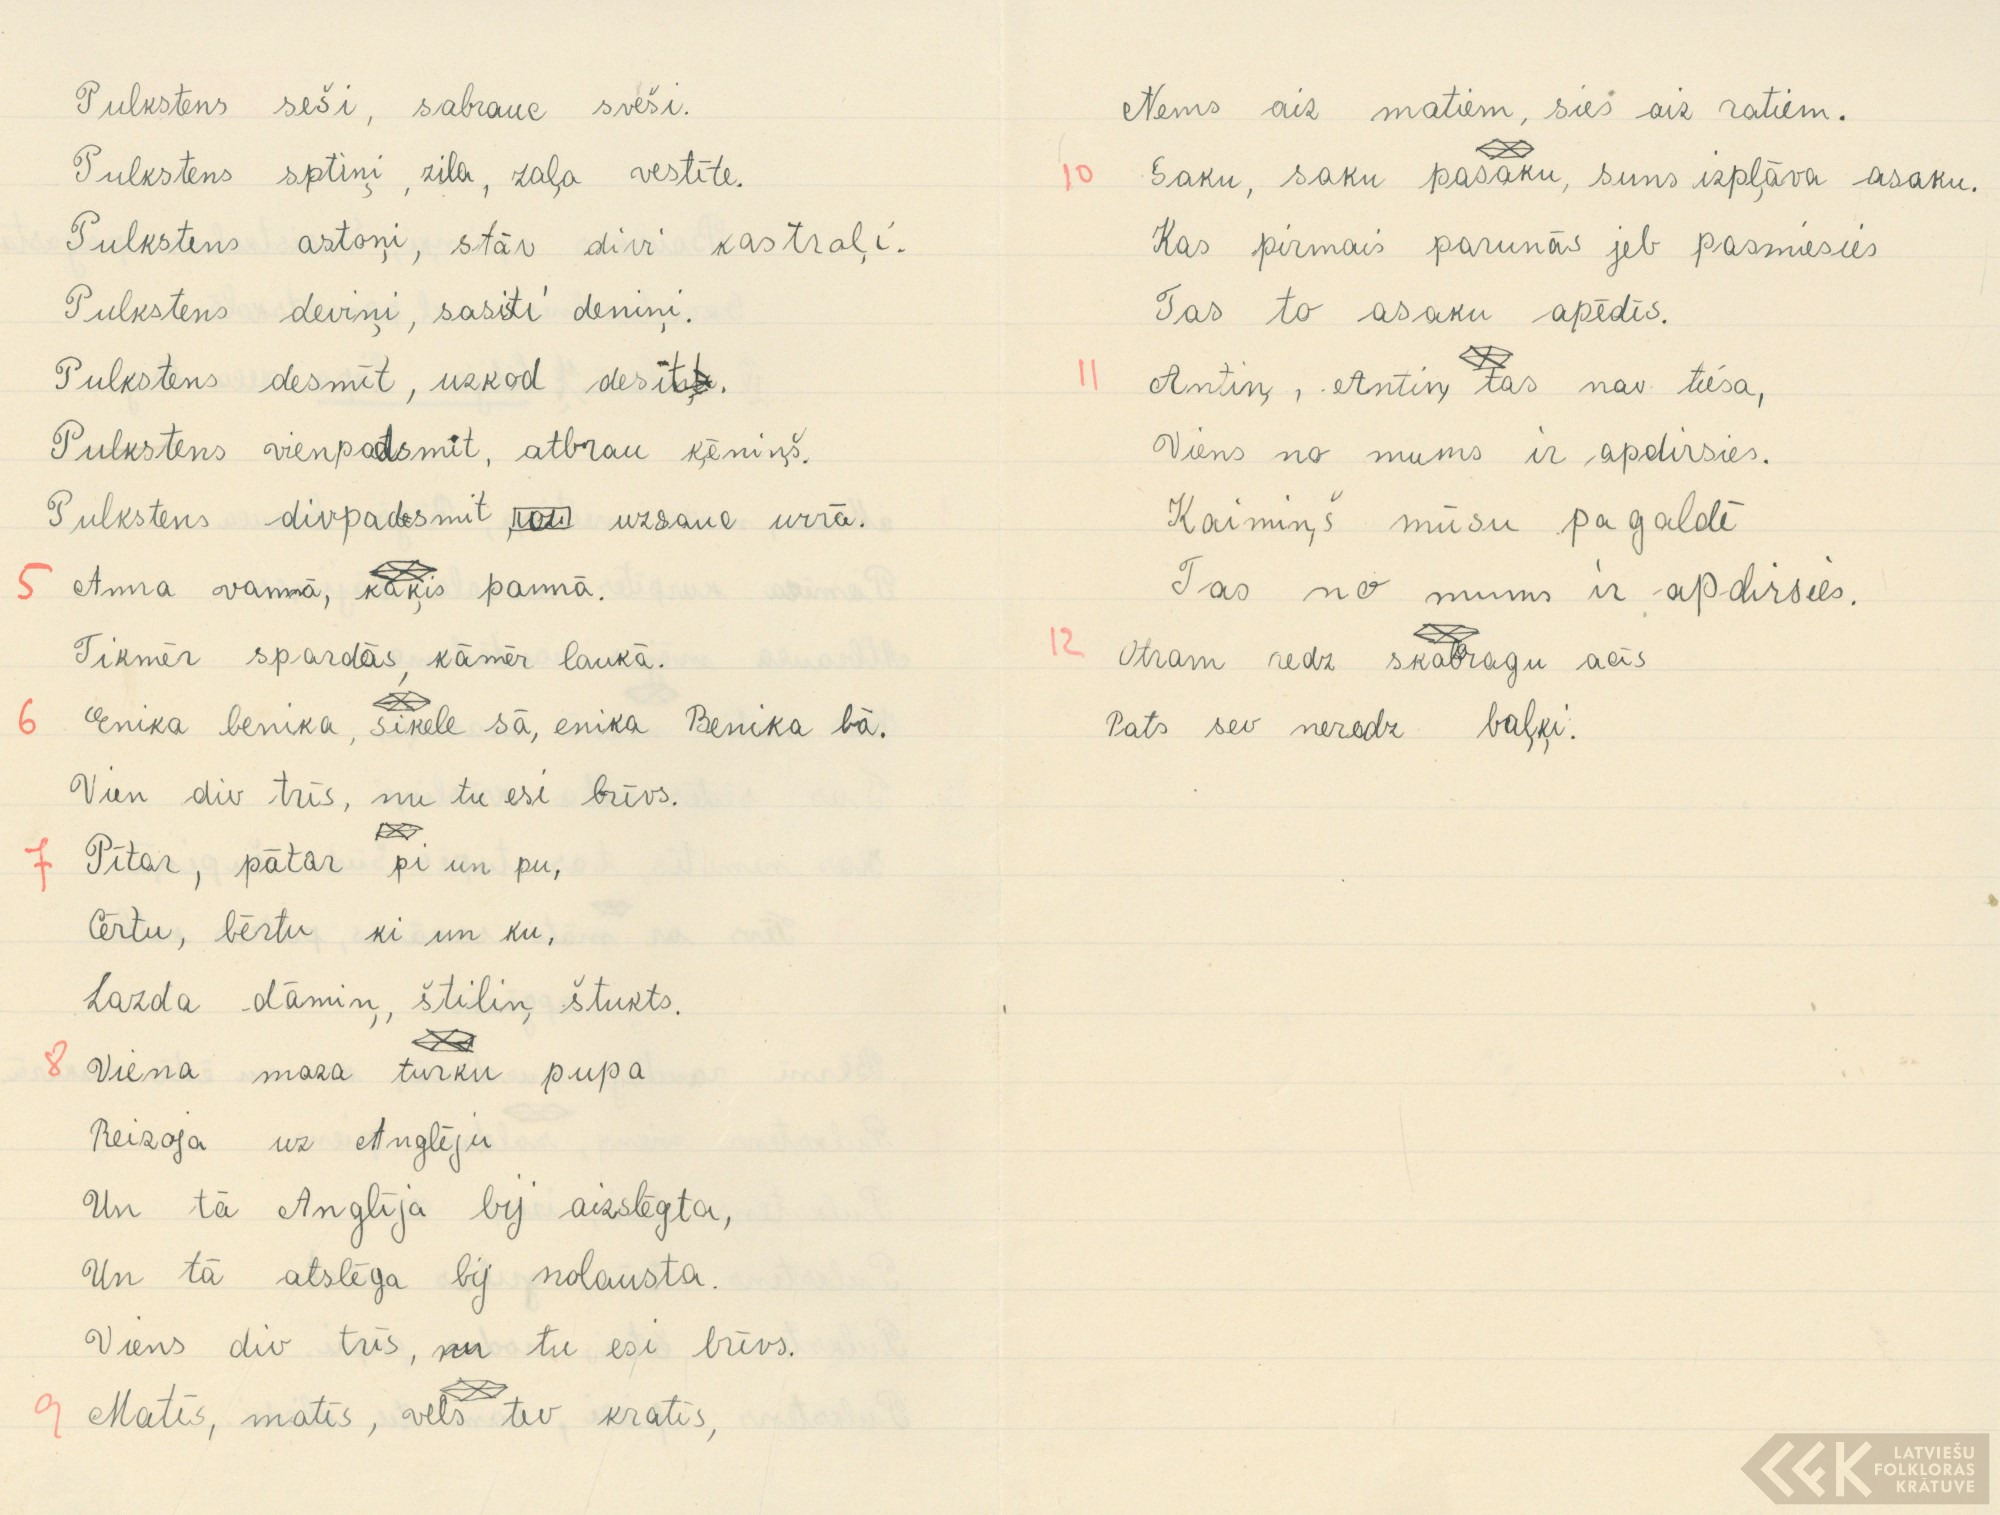 Pulkstens seši, sabrauc sveši.
Pulkstens sptiņi, zila, zaļa vestīte.
Pulkstens astoņi, stāv divi kastraļi.
Pulkstens deviņi, sasiti deniņi.
Pulkstens desmit, uzkod
Pulkstens vienpadsmit, atbrau ķēniņš.
Pulkstens divpadesmit uzsauc urrā.
5 Anna vannā, kaķis pannā.
Tikmēr spardās, kāmēr laukā.
6 Enika benika, sikele sā, enika Benika bā.
Vien div trīs, nu tu esi brīvs.
7 Pītar, pātar pi un pu,
Cērtu, bērtu ki un ku,
Lazda dāmiņ, štiliņ štukts.
8 Viena maza turku pupa
Reizoja uz Anglēju
Un tā Anglīja bij aizslēgta,
Un tā atslēga bij nolausta.
Viens div trīs, nu tu esi brīvs.
9 Matīs, matīs, vels tev kratīs,
Nems aiz matiem, sies aiz ratiem.
10 Saku, saku pasaku, suns izpļāva asaku.
Kas pirmais parunās jeb pasmiesies
Tas to asaku apēdīs.
11 Antiņ, Antiņ tas nav tiesa,
Viens no mums ir apdirsies.
Kaimiņš mūsu pagaldē
Tas no mums ir apdirsies.
12 Otram redz skabragu acīs
Pats sev neredz baļķi.
LATVIEŠU
FOLKLORAS
KRĀTUVE